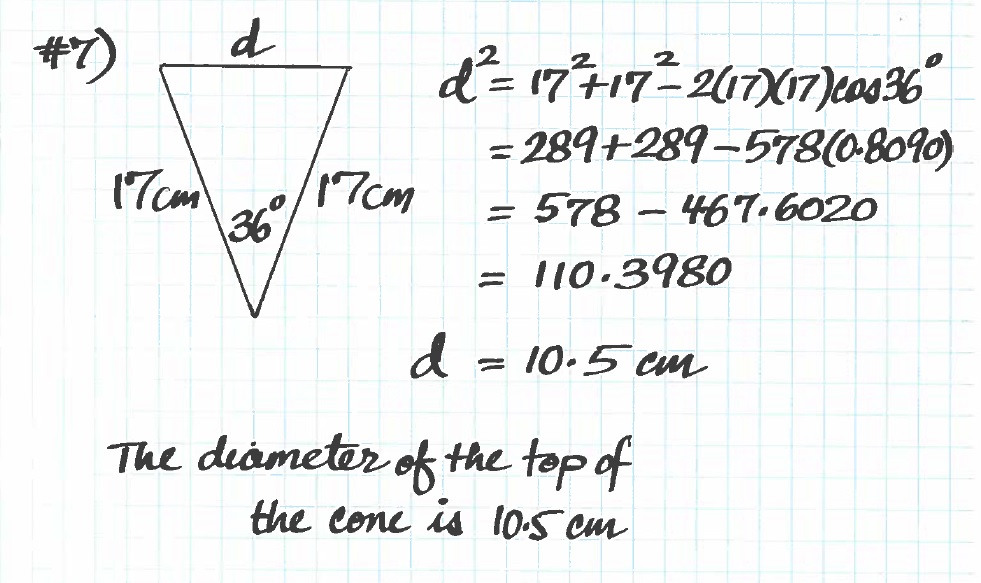 #7)
d
17cm
36°
17cm
d² = 17² + 17² - 2(17)(17)cos36°
= 289 + 289 - 578(0.8090)
= 578 - 467.6020
= 110.3980
d = 10.5 cm
The diameter of the top of
the cone is 10.5 cm